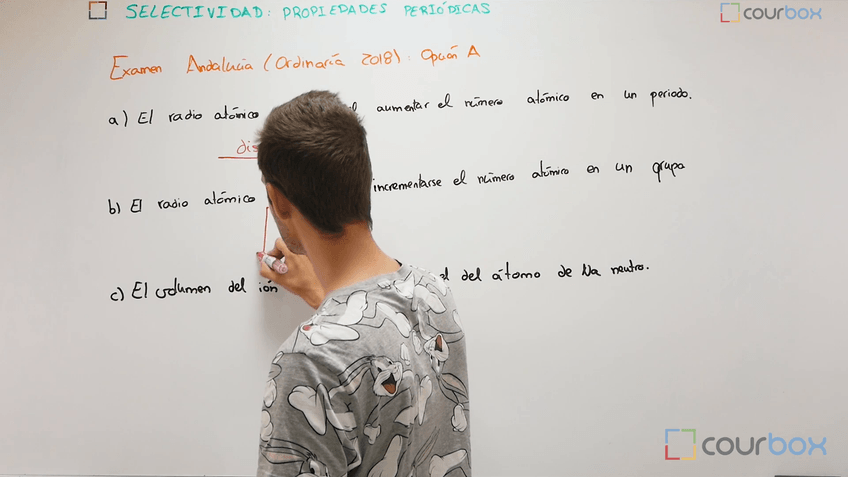 SELECTIVIDAD: PROPIEDADES PERIÓDICAS
courbox
Examen Andalucía (Ordinaria 2018): Opción A
a) El radio atómico aumentar el número atómico en un periodo.
b) El radio atómico incrementarse el número atómico en un grupo
c) El volumen del ión del átomo de Na neutro.
courbox